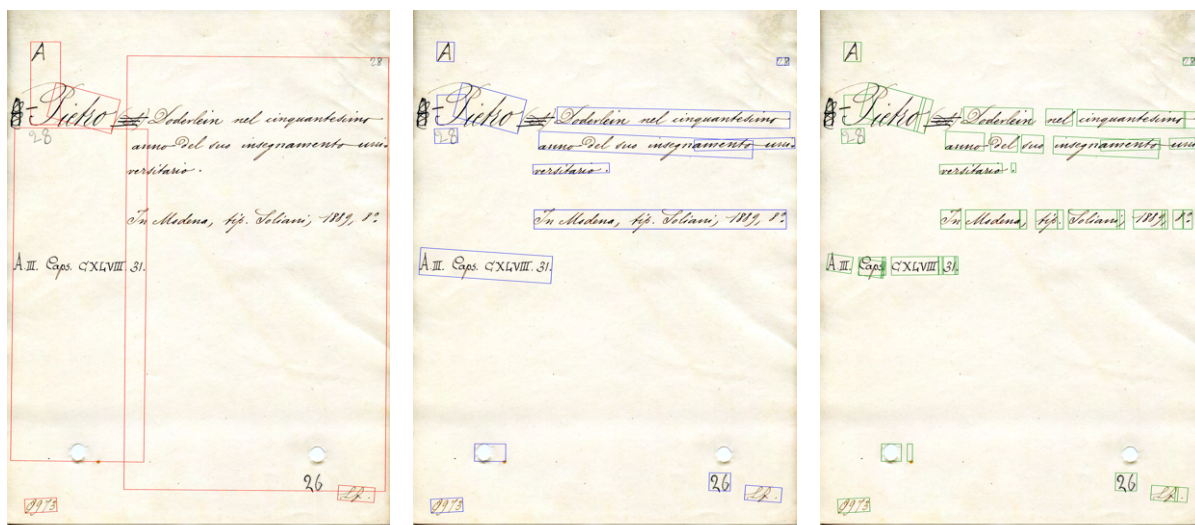 A
28
Pietro Doderlein nel cinquantesimo
28
anno del suo insegnamento uni-
versitario.
In Modena, tip. Soliani, 1889, 8º
A.III. Caps. CXLVIII. 31.
26
0973
A
28
Pietro Doderlein nel cinquantesimo
28
anno del suo insegnamento uni-
versitario.
In Modena, tip. Soliani, 1889, 8º
A.III. Caps. CXLVIII. 31.
26
0973
A
28
Pietro Doderlein nel cinquantesimo
28
anno del suo insegnamento uni
versitario.
In Modena, tip. Soliani, 1889, 8º
A.III. Caps. CXLVIII. 31.
26
0973